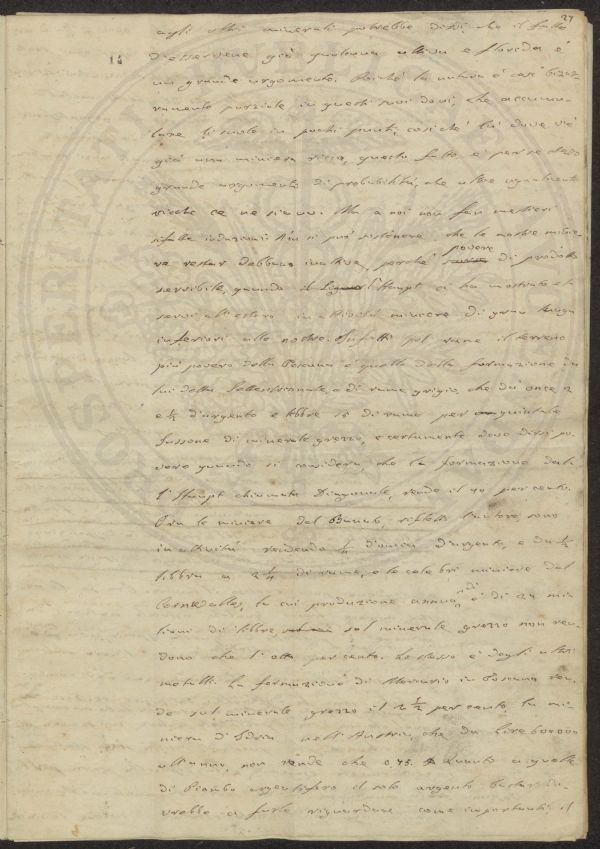 27
agli altri minerali potrebbe dirsi, che il fatto
14
d'esservene già qualcuna attiva e florida è
un grande argomento. Poiché la natura è così bizzar-
ramente parziale in questi suoi doni, che accumu-
lare li suole in pochi punti, cosiché là dove v'è
già una miniera ricca, questo fatto è per se stesso
grande argomento di probabilità, che altre ugualmente
ricche ce ne sieno. Ma a noi non fan mestieri
siffatte induzioni. Non si può sostenere che le nostre minie-
re restar debbano inattive, perché povere di prodotto
servibile, quando l'Haupt ci ha mostrato che
sonvi all'estero in attività miniere di gran lunga
inferiori alle nostre. Infatti pel rame il terreno
più povero della Toscana è quello della formazione da
lui detta Settentrionale, o di rame grigio, che dà once 2
e ½ d'argento e libbre 15 di rame per quintale
tossone di minerale grezzo, e certamente deve dirsi po-
vero quando si consideri, che la formazione dal-
l'Haupt chiamata Diagonale, rende il 40 per cento.
Ora le miniere del Banato, riflette l'autore, sono
in attività rendendo ¼ d'oncia d'argento, e da ½
libbra a 2 ¼ di rame, e le celebri miniere del
Cornovalles, la cui produzione annua è di 24 mi-
lioni di libbre, sul minerale grezzo non ren-
dono che l'otto per cento. Lo stesso è degli altri
metalli. La formazione di Mercurio in Toscana ren-
de sul minerale grezzo il 2 ½ per cento, la mi-
niera d'Idria nell'Austria, che dà Lire 600000
all'anno, non rende che 0.75. Quanto a quelle
di Piombo argentifero il solo argento bastar do-
vrebbe a farle riguardare come importanti, il